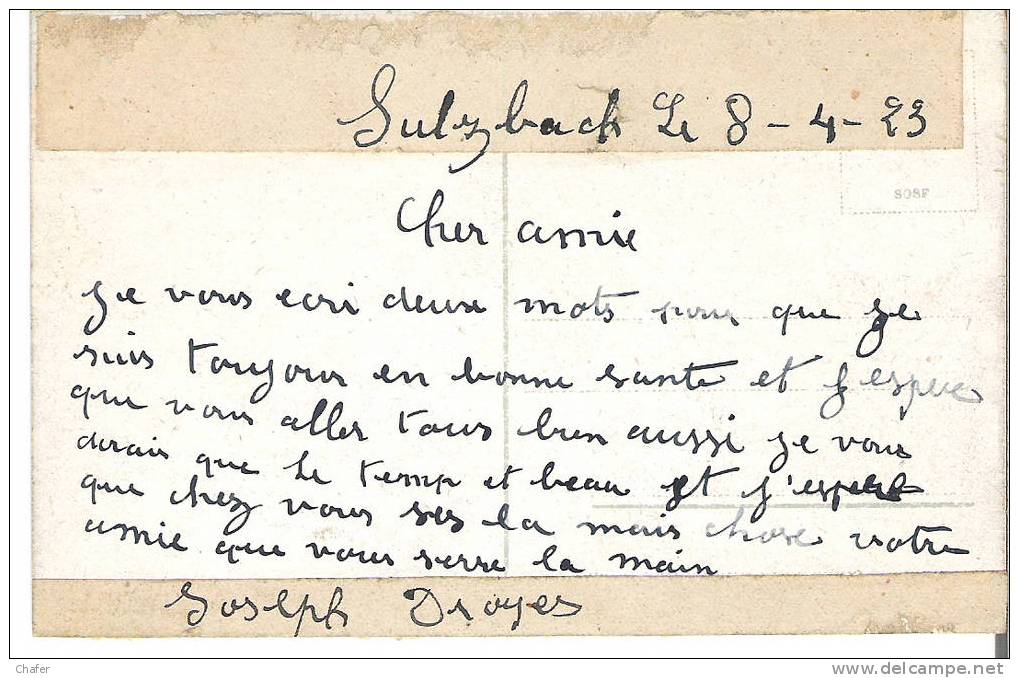 Sulzbach Le 8-4-23
SOSF
Cher amie
Je vous ecri deux mots pour que je
suis toujours en bonne sante et j'espere
que vous aller tous bien aussi je vous
dirais que le temp et beau et j'espere
que chez vous ses la mais chose votre
amie que vous serre la main
Joseph Droyes
Chafer
www.delcampe.net